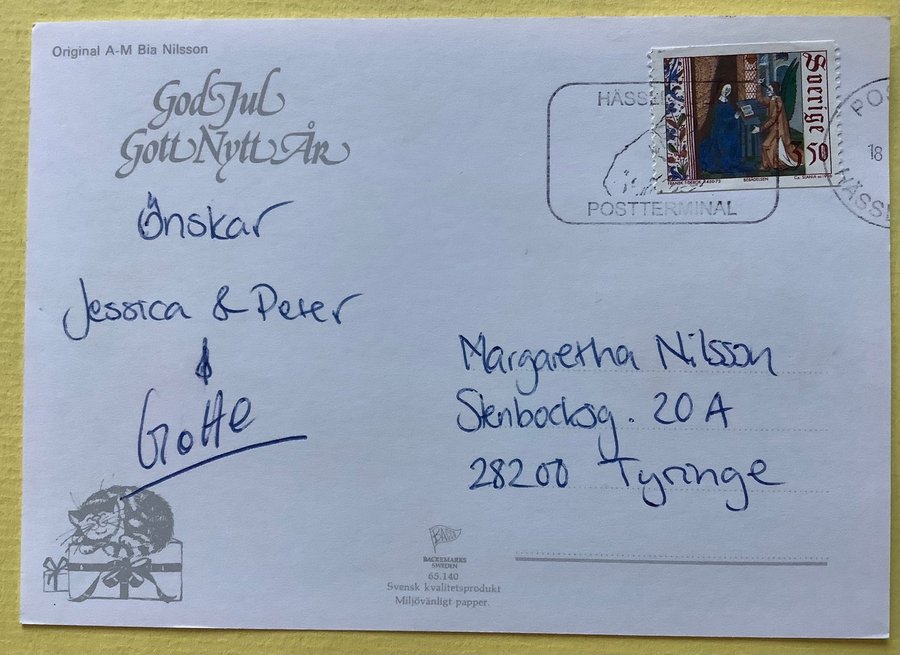 Original A-M Bia Nilsson
God Jul
Gott Nytt År
Önskar
Jessica & Peter
&
Gotte
Margaretha Nilsson
Stenbocksg. 20 A
28200 Tyringe
POSTTERMINAL
Sverige
50
BEBÅDELSEN
BACKEMARKS
SWEDEN
65.140
Svensk kvalitetsprodukt
Miljövänligt papper.
18